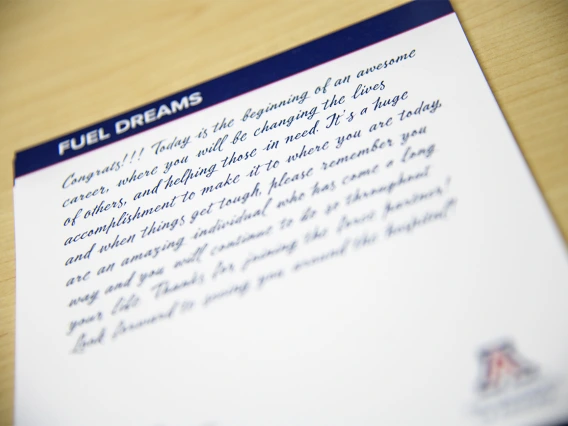 FUEL DREAMS
Congrats!!! Today is the beginning of an awesome
career, where you will be changing the lives
of others, and helping those in need. It's a huge
accomplishment to make it to where you are today,
and when things get tough, please remember you
are an amazing individual who has come a long
way and you will continue to do so throughout
your life. Thanks for joining the force partner!
Look forward to seeing you around the hospital!
A